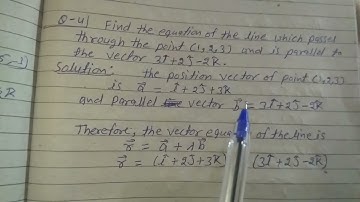 Q-4) Find the equation of the line which passes
through the point (1,2,3) and is parallel to
the vector 3î+2ĵ-2k̂.
Solution: the position vector of point (1,2,3)
is a⃗ = î+2ĵ+3k̂
and Parallel vector b⃗ = 3î+2ĵ-2k̂
Therefore, the vector equ of the line is
r⃗ = a⃗ + λb⃗
r⃗ = (î+2ĵ+3k̂) (3î+2ĵ-2k̂)